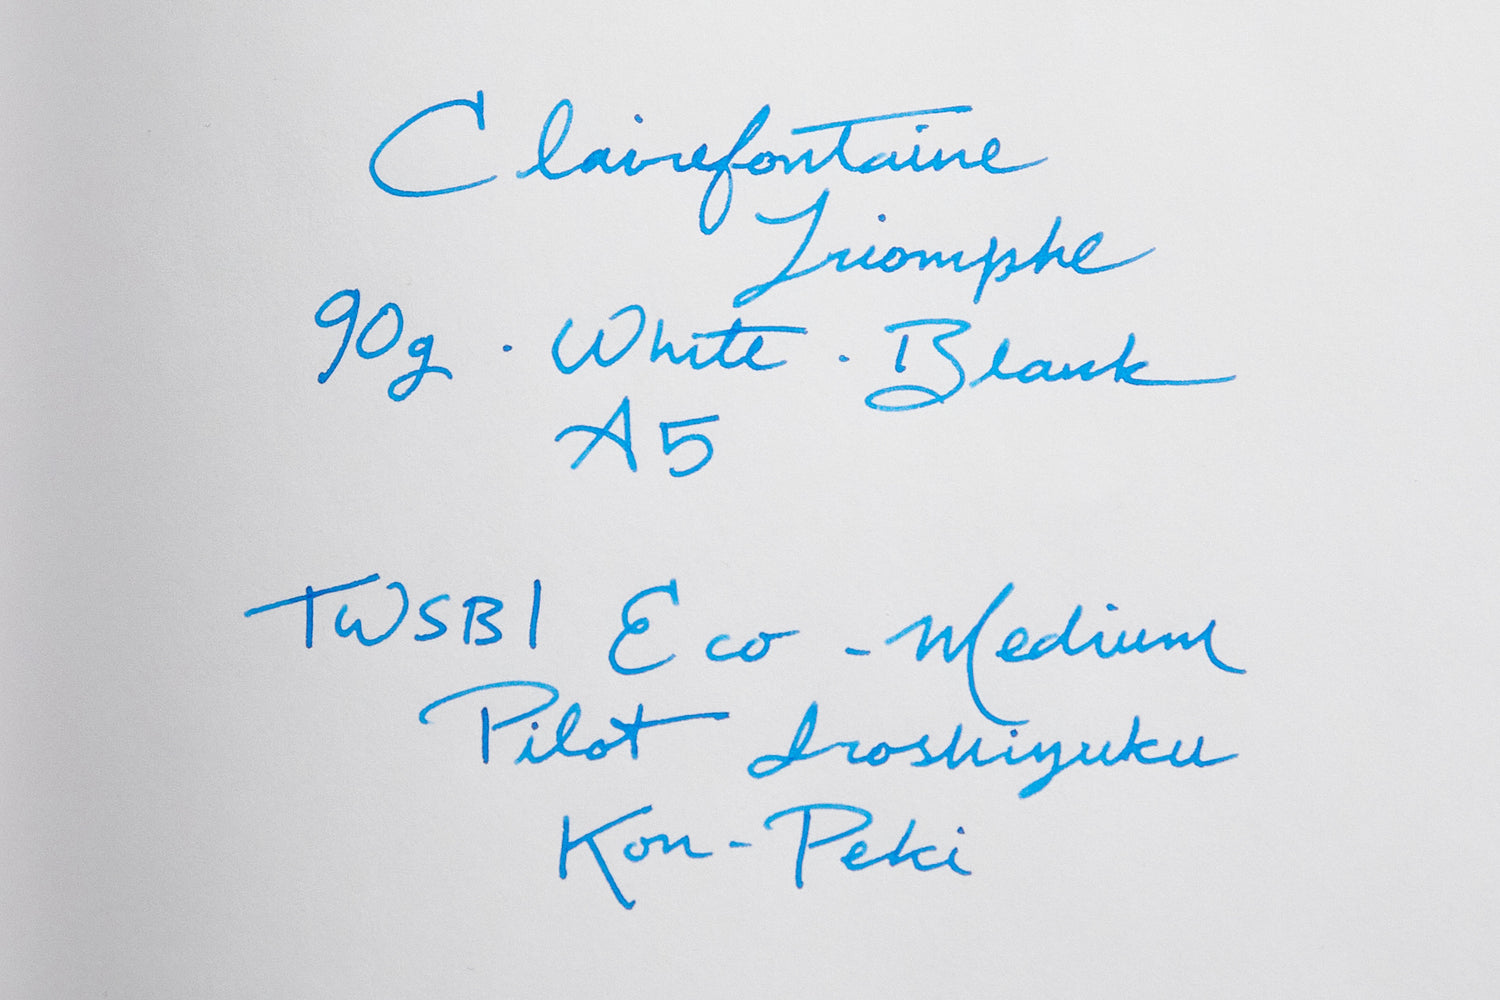 Clairefontaine
Triomphe
90g · White · Blank
A5
TWSBI Eco - Medium
Pilot Iroshizuku
Kon-Peki